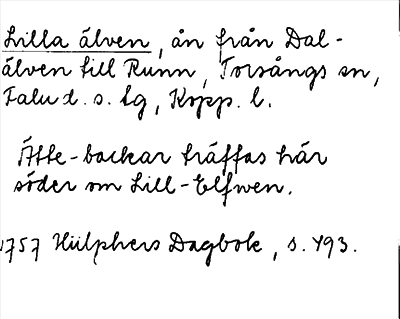 Lilla älven, ån från Dal-
älven till Runn, Torsångs sn,
Falu d. s. lg, Kopp. l.
Ätte-backar träffas här
söder om Lill-Elfwen.
1757 Hülphers Dagbok, s. 493.